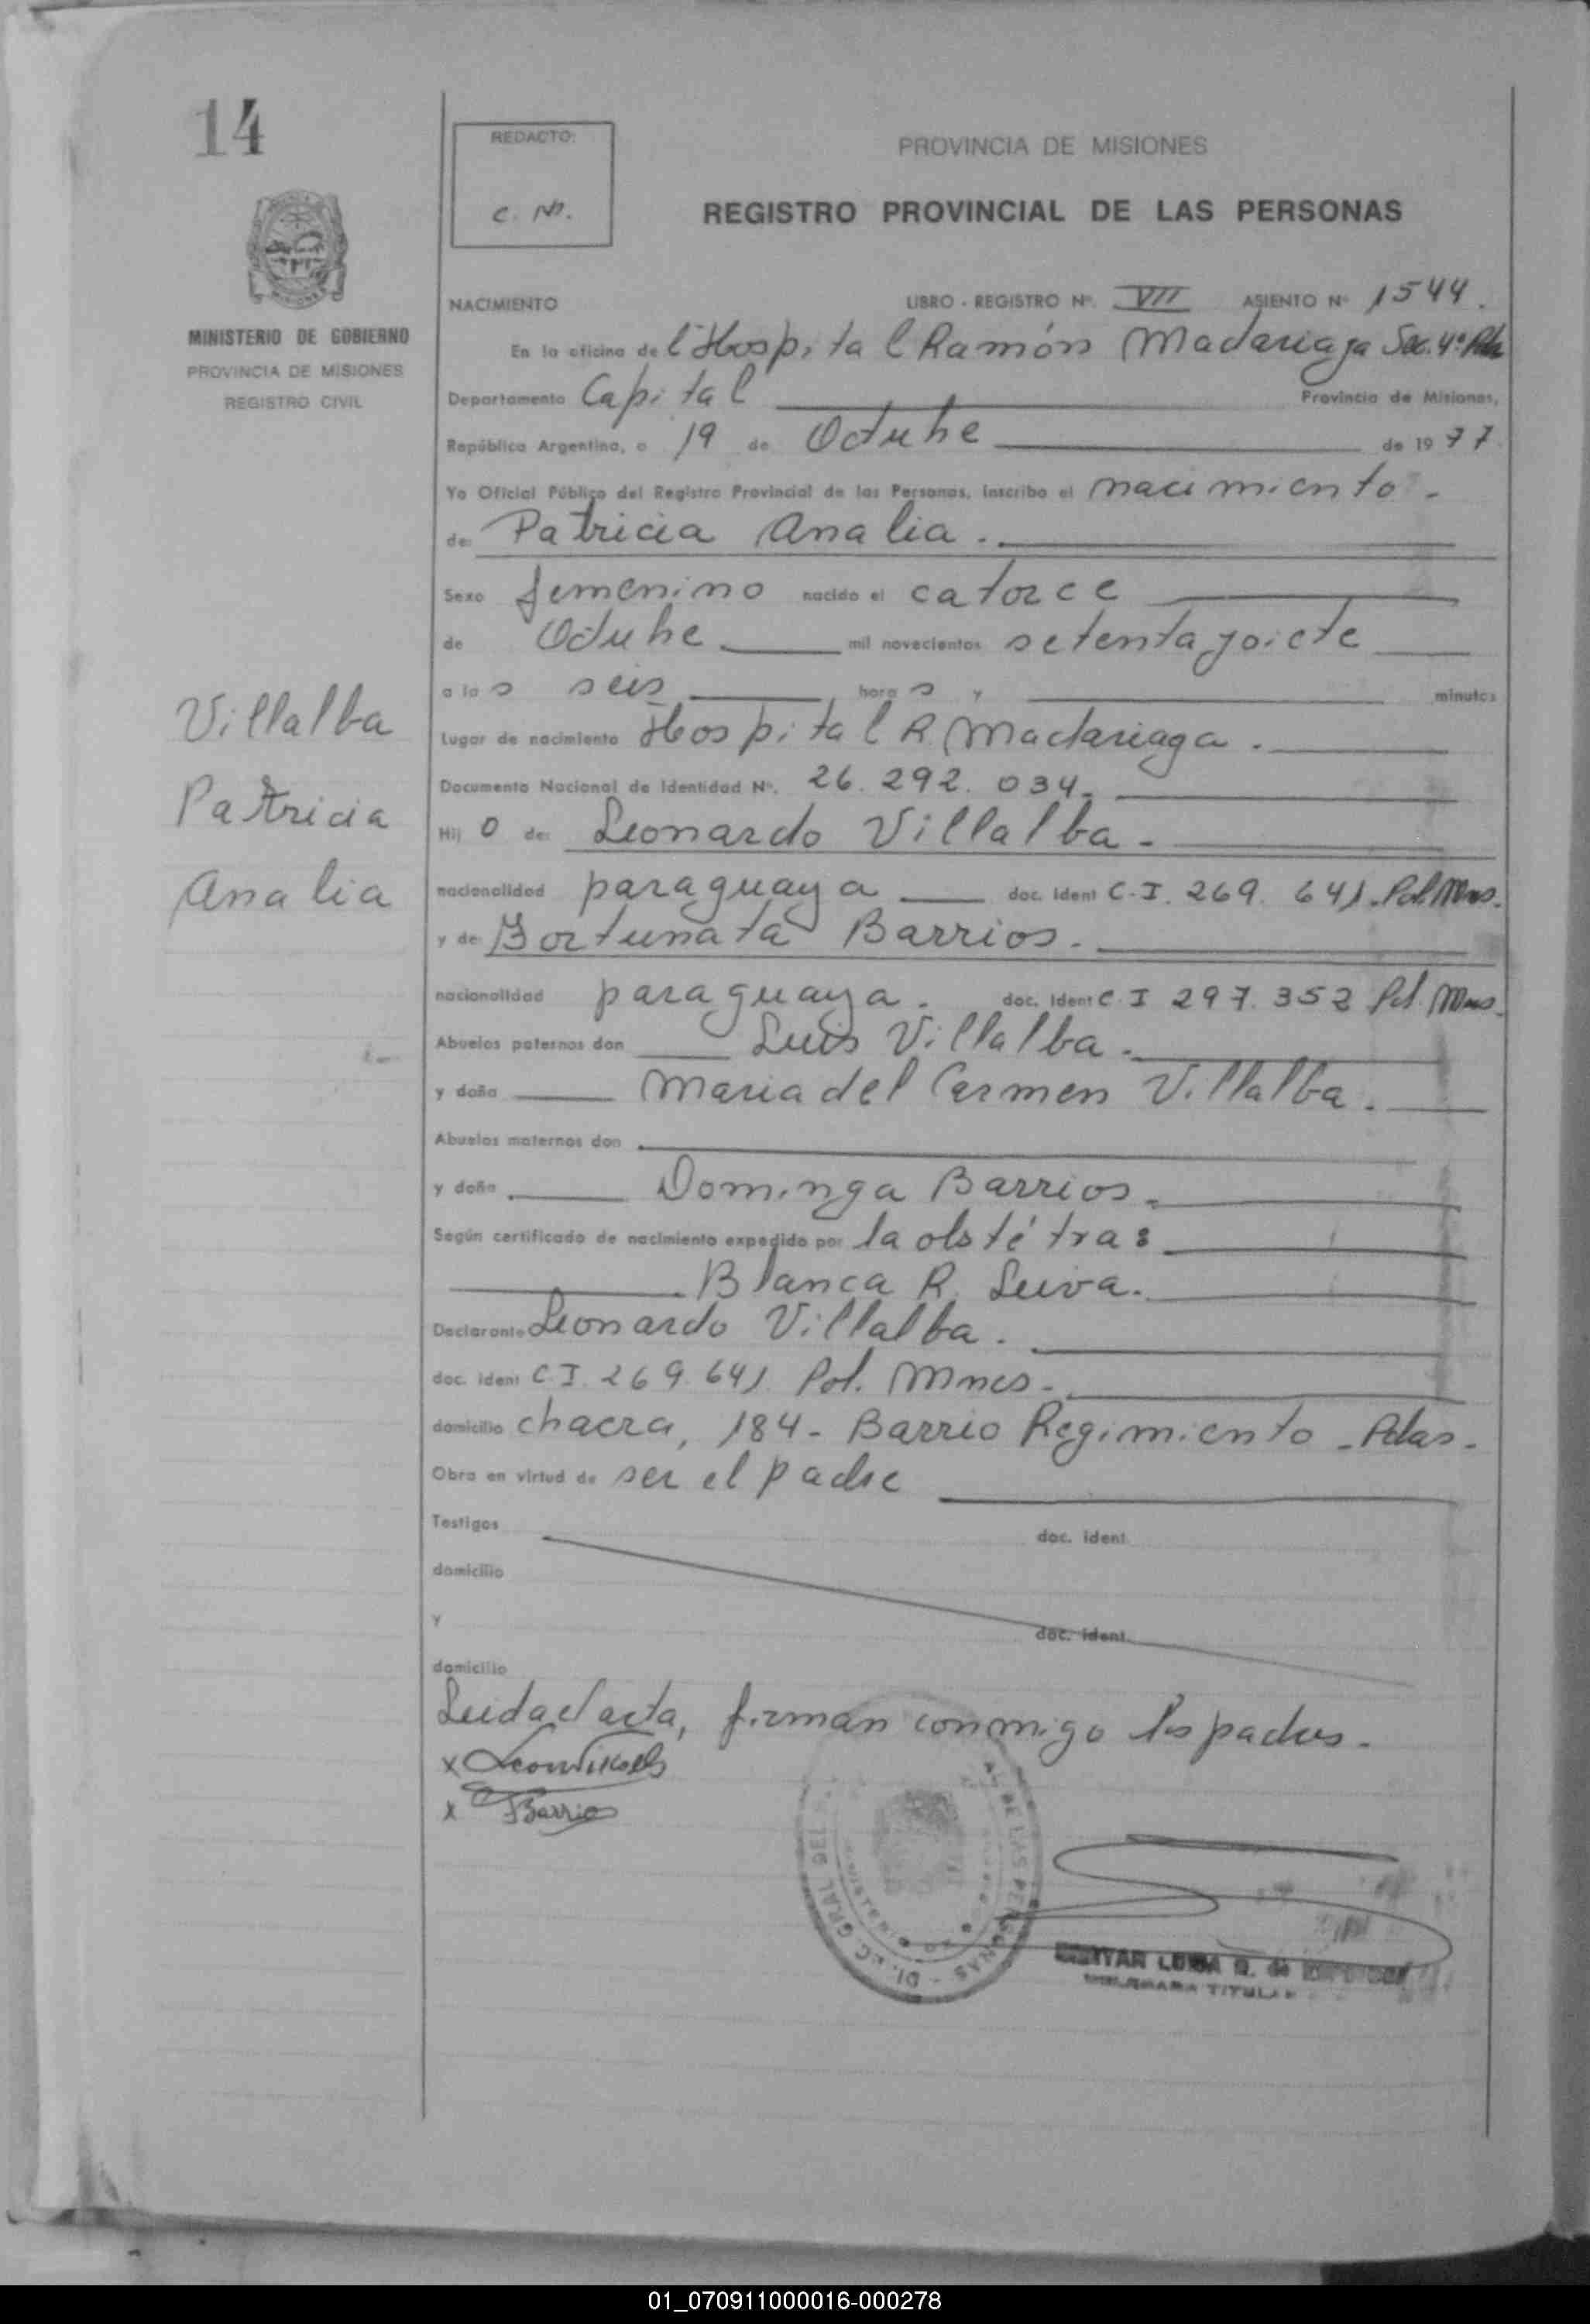 14
REDACTO:
C. M.
PROVINCIA DE MISIONES
REGISTRO PROVINCIAL DE LAS PERSONAS
MINISTERIO DE GOBIERNO
PROVINCIA DE MISIONES
REGISTRO CIVIL
Villalba
Patricia
Analia
NACIMIENTO LIBRO - REGISTRO Nº. VII ASIENTO Nº 1544.
En la oficina del Hospital Ramón Madariaga Sec. 4ª Pdas
Departamento Capital Provincia de Misiones,
República Argentina, a 19 de Octubre de 1977
Yo Oficial Público del Registro Provincial de las Personas, inscribo el nacimiento.
de: Patricia Analia.
Sexo femenino nacido el catorce
de Octubre mil novecientos setenta y siete
a las seis horas y minutos
Lugar de nacimiento Hospital R. Madariaga.
Documento Nacional de Identidad Nº. 26.292.034.
Hijo de: Leonardo Villalba.
nacionalidad paraguaya doc. ident C.I. 269.641. Pol. Mnes.
y de Fortunata Barrios.
nacionalidad paraguaya. doc. ident C.I 297.352 Pol. Mnes.
Abuelos paternos don Luis Villalba.
y doña Maria del Carmen Villalba.
Abuelos maternos don
y doña Dominga Barrios.
Según certificado de nacimiento expedido por la obstétra:
Blanca R. Leiva.
Declarante Leonardo Villalba.
doc. ident C.I. 269.641. Pol. Mnes.
domicilio chacra, 184 - Barrio Regimiento - Pdas.
Obra en virtud de ser el padre
Testigos doc. ident.
domicilio
Y doc. ident.
domicilio
Leida el acta, firman conmigo los padres.
x
x Barrios
DIREC. GRAL DEL DE LAS PERSONAS
LUISA G. de
TITULAR
01_070911000016-000278